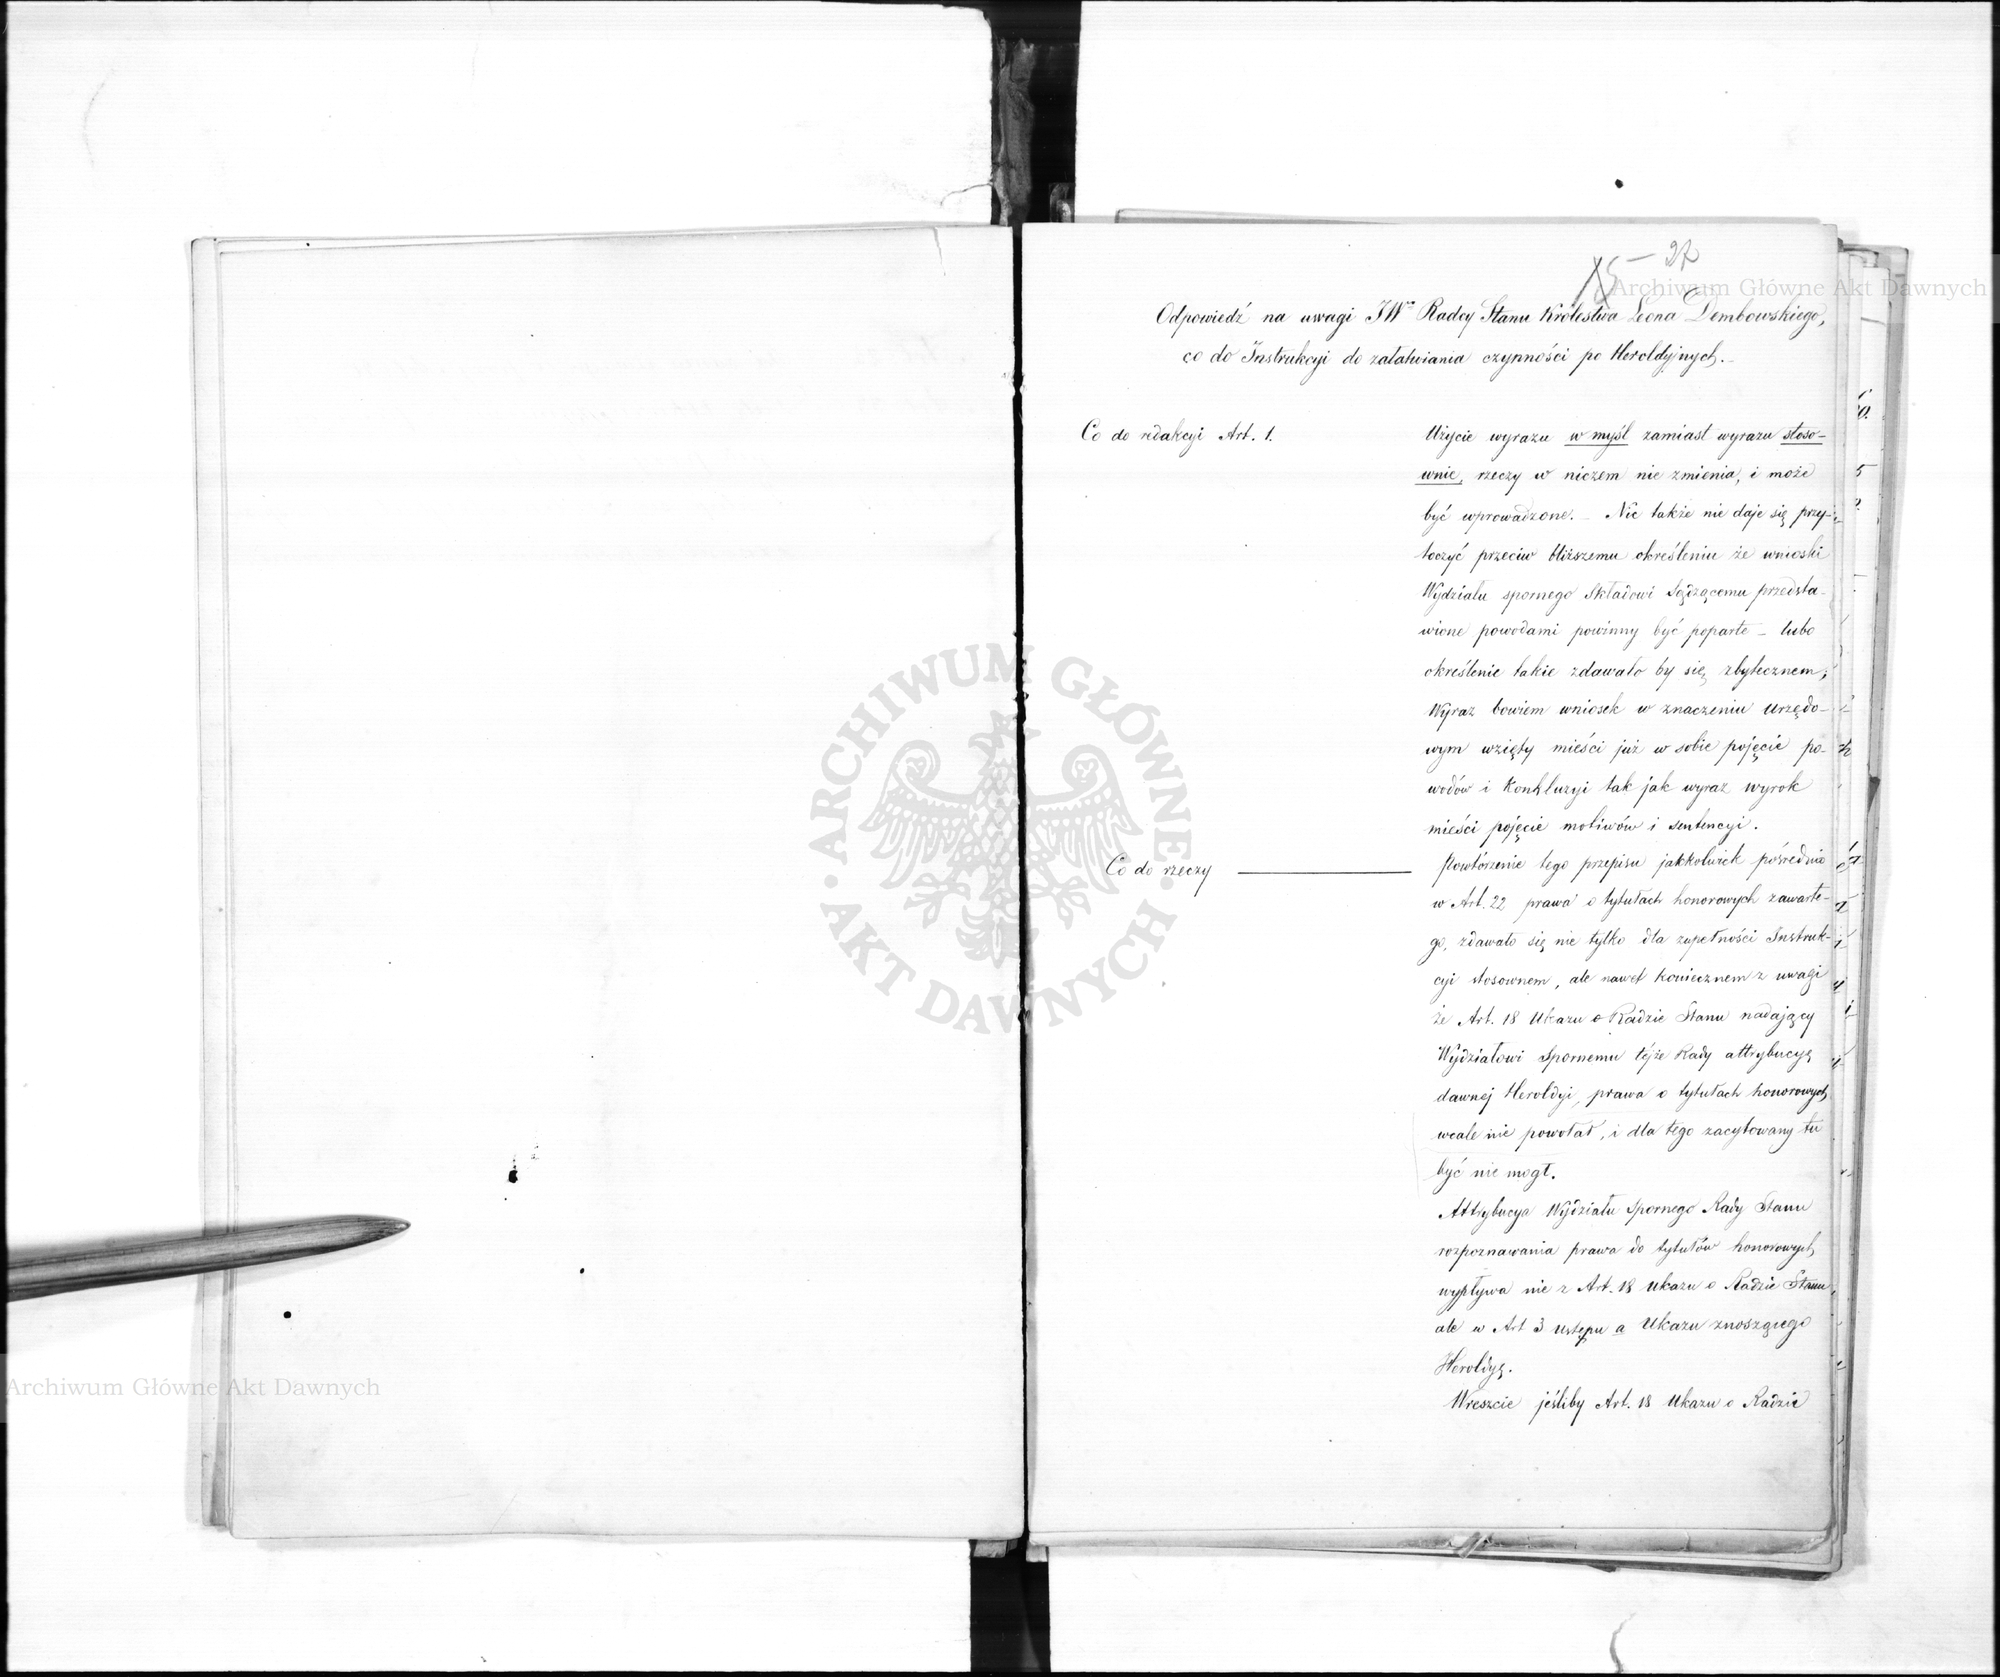 27
Archiwum Główne Akt Dawnych
Odpowiedź na uwagi JWo Radcy Stanu Królestwa Leona Dembowskiego,
co do Instrukcyi do załatwiania czynności po Heroldyjnych.
Co do redakcyi Art. 1.
Użycie wyrazu w myśl zamiast wyrazu stoso-
wnie, rzeczy w niczem nie zmienia, i może
być wprowadzone. – Nic także nie daje się przy-
toczyć przeciw bliższemu określeniu że wnioski
Wydziału spornego Składowi Sądzącemu przedsta-
wione powodami powinny być poparte – lubo
określenie takie zdawało by się zbytecznem;
Wyraz bowiem wniosek w znaczeniu urzędo-
wym wzięty mieści już w sobie pojęcie po-
wodów i Konkluzyi tak jak wyraz wyrok
mieści pojęcie motiwów i sentencyi.
Co do rzeczy
Powtórzenie tego przepisu jakkolwiek pośrednio
w Art. 22 prawa o tytułach honorowych zawarte-
go, zdawało się nie tylko dla zupełności Instruk-
cyi stosownem, ale nawet koniecznem z uwagi
że Art. 18 Ukazu o Radzie Stanu nadający
Wydziałowi Spornemu tejże Rady attrybucyę
dawnej Heroldyi, prawa o tytułach honorowych
wcale nie powołał, i dla tego zacytowany tu
być nie mógł.
Attrybucya Wydziału Spornego Rady Stanu
rozpoznawania prawa do tytułów honorowych
wypływa nie z Art. 18 Ukazu o Radzie Stanu,
ale w Art 3 ustępu a Ukazu znoszącego
Heroldyę.
Wreszcie jeśliby Art. 18 Ukazu o Radzie
ARCHIWUM GŁÓWNE AKT DAWNYCH
Archiwum Główne Akt Dawnych